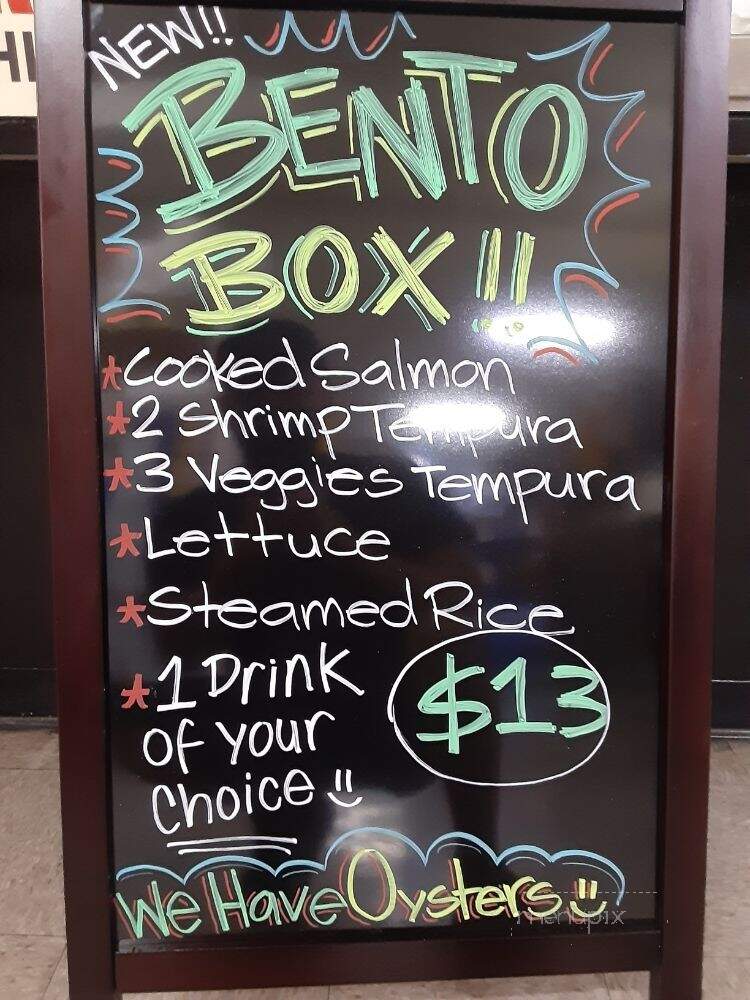 HI
NEW!!
BENTO
BOX!!
*Cooked Salmon
*2 Shrimp Tempura
*3 Veggies Tempura
*Lettuce
*Steamed Rice
*1 Drink
of your
choice
$13
We Have Oysters
menupix